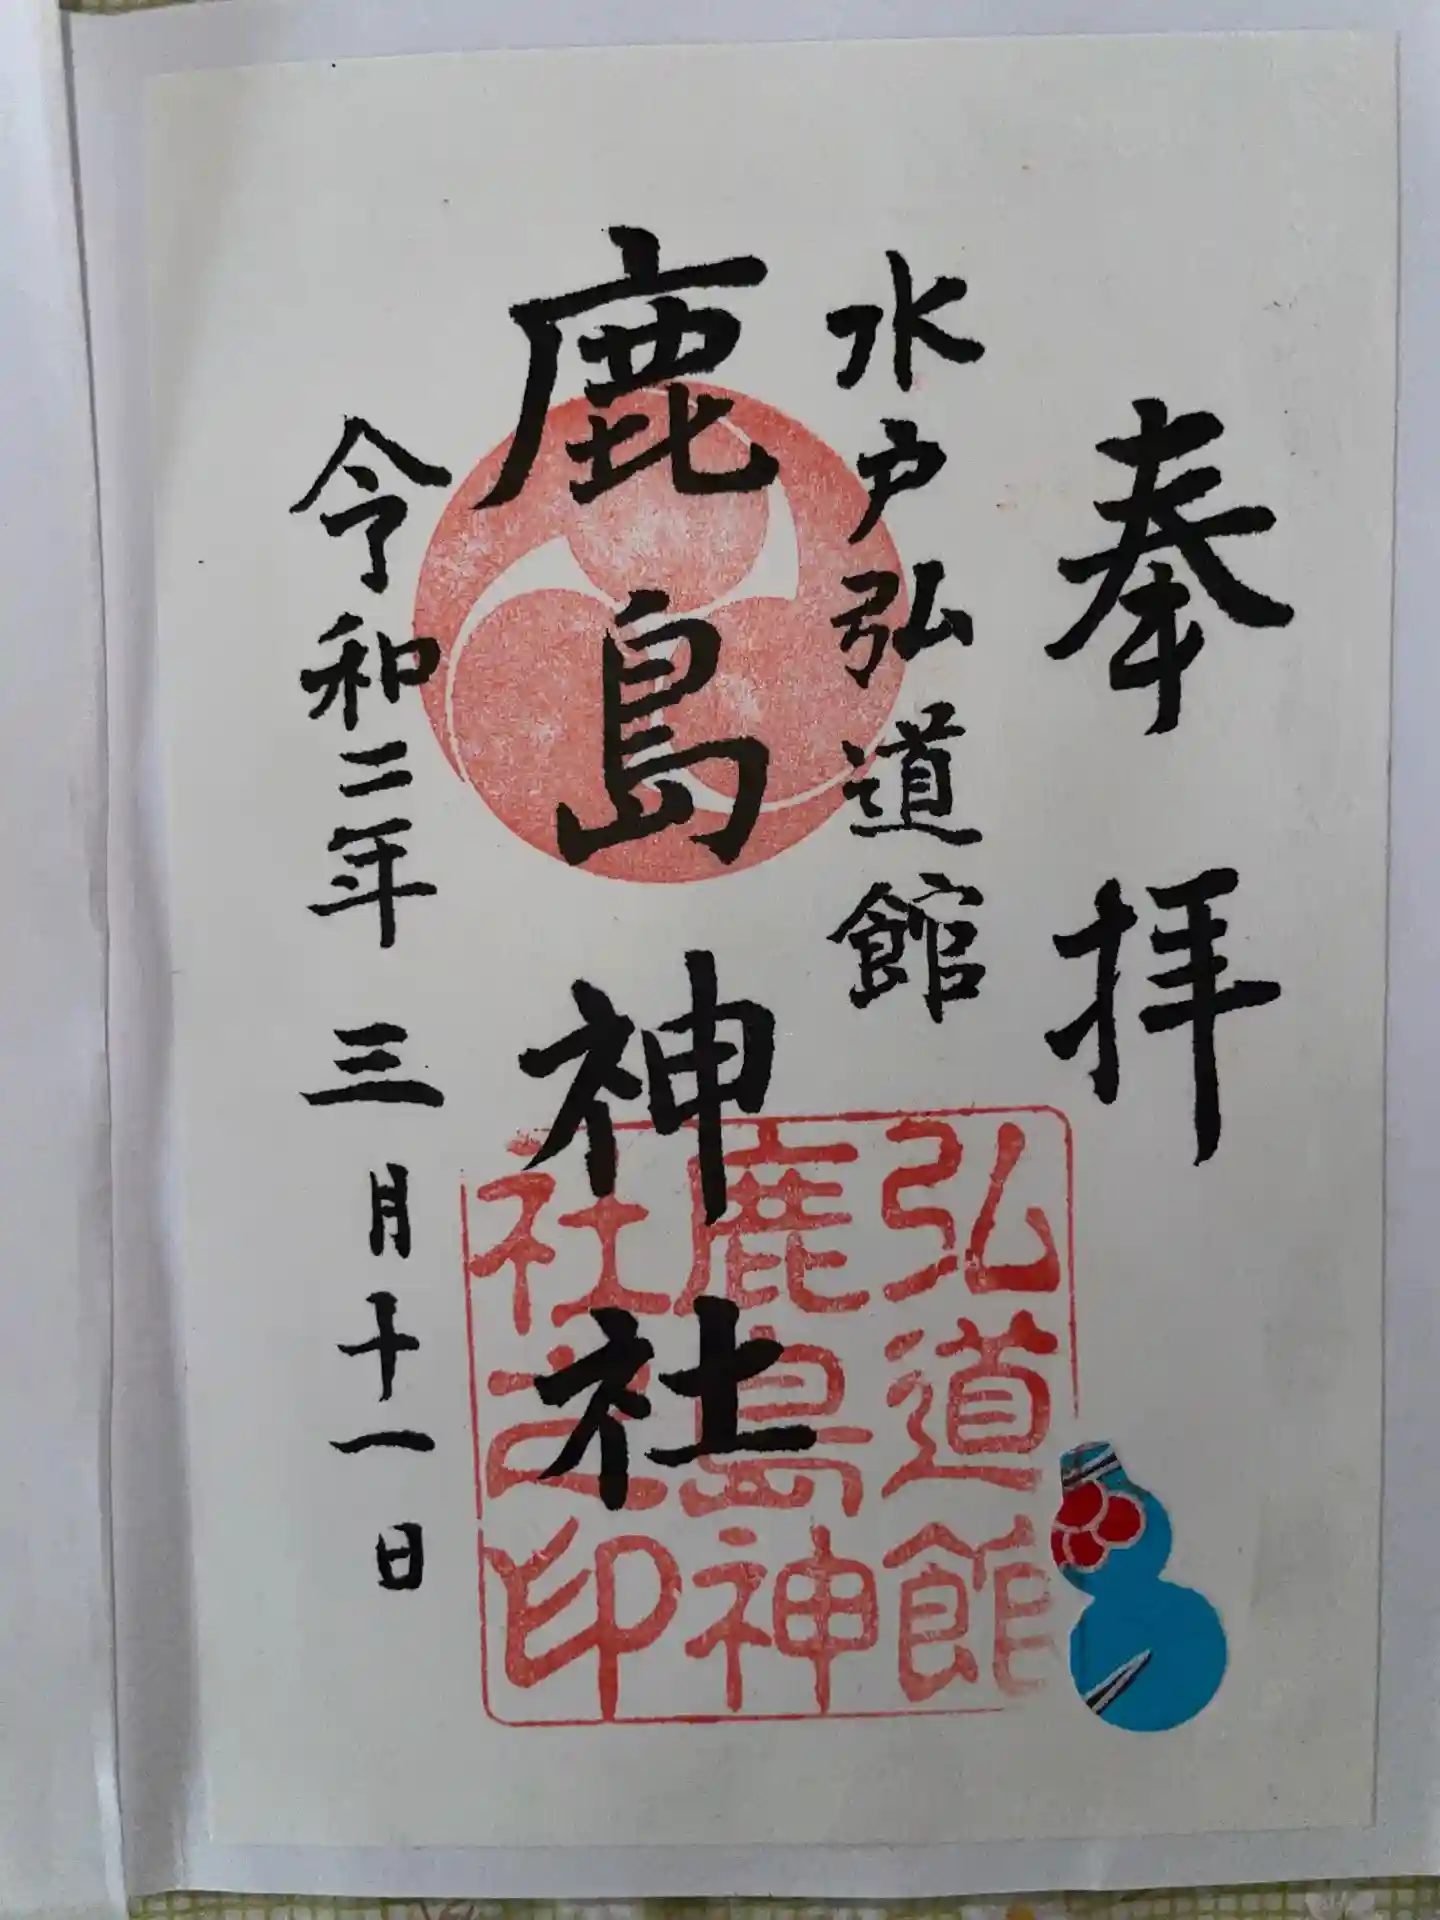 奉拝
水戸弘道館
鹿島神社
令和二年 三月十一日
弘道館
鹿島神
社之印